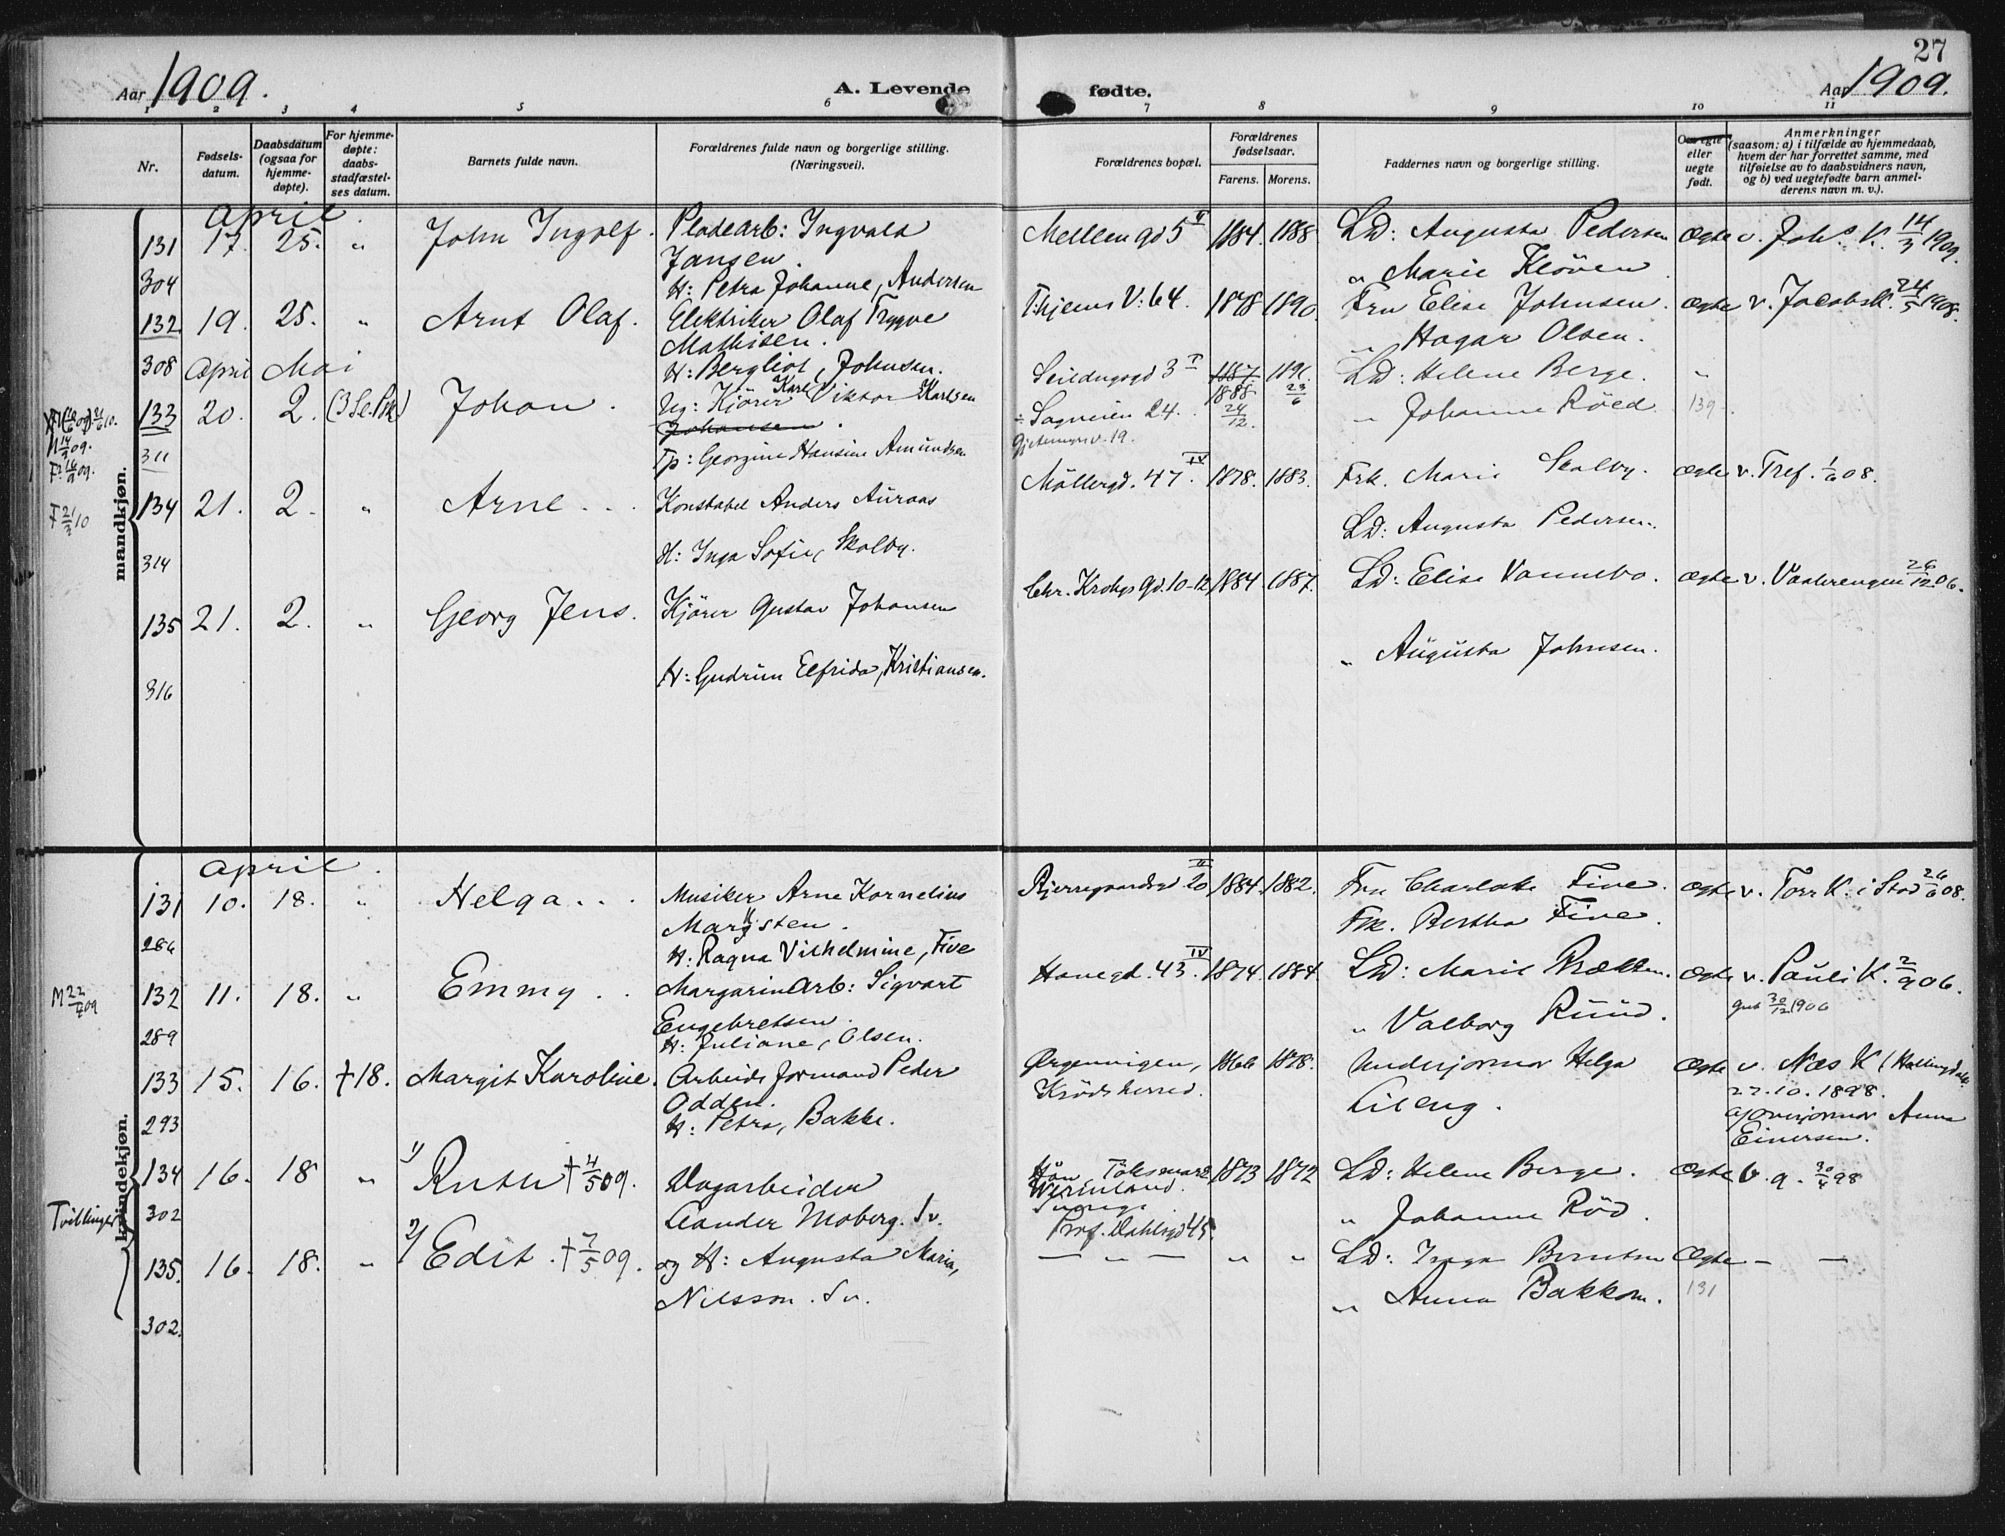 Aar 1909. A. Levende fødte. Aar 1909.
27
1 2 3 4 5 6 7 8 9 10 11
Nr.
Fødsels-
datum.
Daabsdatum
(ogsaa for
hjemme-
døpte).
For hjemme-
døpte:
daabs-
stadfæstel-
ses datum.
Barnets fulde navn.
Forældrenes fulde navn og borgerlige stilling.
(Næringsvei).
Forældrenes bopæl.
Forældrenes
fødselsaar.
Farens. Morens.
Faddernes navn og borgerlige stilling.
Om egte
eller
uegte
født.
Anmerkninger
(saasom: a) i tilfælde av hjemmedaab,
hvem der har forrettet samme, med
tilføielse av to daabsvidners navn,
og b) ved uegtefødte barn anmel-
derens navn m. v.).
mandkjøn.
April.
131 17. 25. " John Ingolf. Pladearb: Ingvald Møllergd 5 II 1884. 1888. Ld: Augusta Pedersen Ægte v. Johs K. 14/3 1909.
Jansen.
304 H: Petra Johanne, Andersen " Marie Kløven.
132 19. 25. " Arnt Olaf. Elektriker Olaf Trygve Thjems V. 64. 1878 1890. Fru Elise Johnsen. Ægte v. Jacobs K. 24/5 1908.
Mathisen.
308 H: Bergliot, Johnsen. " Hagar Olsen.
April Mai
133 20. 2. Johan. Ug: Kjører Karl Viktor Karlsen Seildugsgd 3 I 1887 1891. Ld: Helene Berge. "
Johansen. Sagveien 24. 1888 24/12. 23/6 " Johanne Röed. 139
311 Tp: Georgine Hansine Amundsen
134 21. 2. " Arne Konstabel Anders Auraas Møllergd. 47 IV. 1878. 1883. Frk. Marie Skolby. Ægte v. Tref. 1/6 08.
F 21/3 10
Ld: Augusta Pedersen.
314 H: Inga Sofie, Skolby.
135 21. 2. " Georg Jens. Kjører Gustav Johansen Chr. Krohgs gd. 10-12, 1884. 1887. Ld: Elise Vannebo. Ægte v. Vaalerengen 26/12 06.
" Augusta Johnsen.
316 H: Gudrun Elfrida, Kristiansen.
kvindekjøn.
April.
131 10. 18. " Helga Musiker Arne Kornelius 20 II 1884. 1882. Fru Charlotte Five. Ægte v. Torr K. i Stod 26/6 08.
Frk. Bertha Five.
286 H: Ragna Vilhelmine, Five
M 22/7 09
132 11. 18. " Emmy Margarinarb: Sigvart Hovegd. 43. IV 1874. 1884. Ld: Marie Brækken. Ægte v. Pauli K. 2/9 06.
Engebretsen. " Valborg Ruud. 30/12 1906
289 H: Juliane, Olsen.
133 15. 16. † 18. Margit Karoline. Arbeidsformand Peder Ørgenvigen, 1866 1878. Underjormor Helga Ægte v. Næs K (Hallingdal.
Odden. Krödsherred. Lileng. 27.10.1898.
293 H: Petra, Bakke. Anna
Einersen.
134 16. 18 " 1) Ruth † 4/5 09. Vegarbeider Töksmark 1873 1872 Ld: Helene Berge. Ægte
302 Leander Moberg. Sv. Wermland. Sverige " Johanne Röd.
Tvillinger
Prof. Dahlsgd 45.
135. 16. 18. " 2) Edit. † 7/5 09. og H: Augusta Maria, — " — " " Ld: Inga Berntsen Ægte — —
Nilsson. Sv. " Anna Bakkom. 131
302.